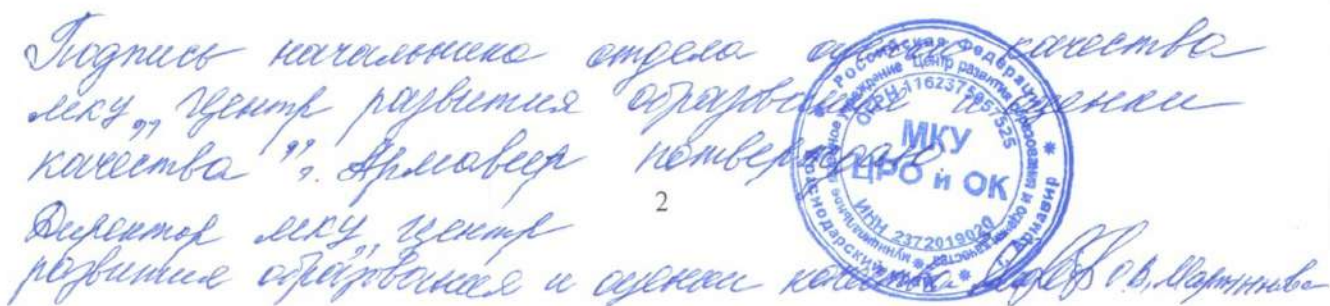 Подпись начальника отдела оценки качества
МКУ „Центр развития образования и оценки
качества" г. Армавир подтверждаю
2
Директор МКУ „Центр
развития образования и оценки качества О.В. Мартынова
Российская Федерация * Краснодарский край * г. Армавир *
муниципальное казенное учреждение "Центр развития образования и оценки качества"
ОГРН 1162375057525
МКУ
ЦРО и ОК
ИНН 2372019020